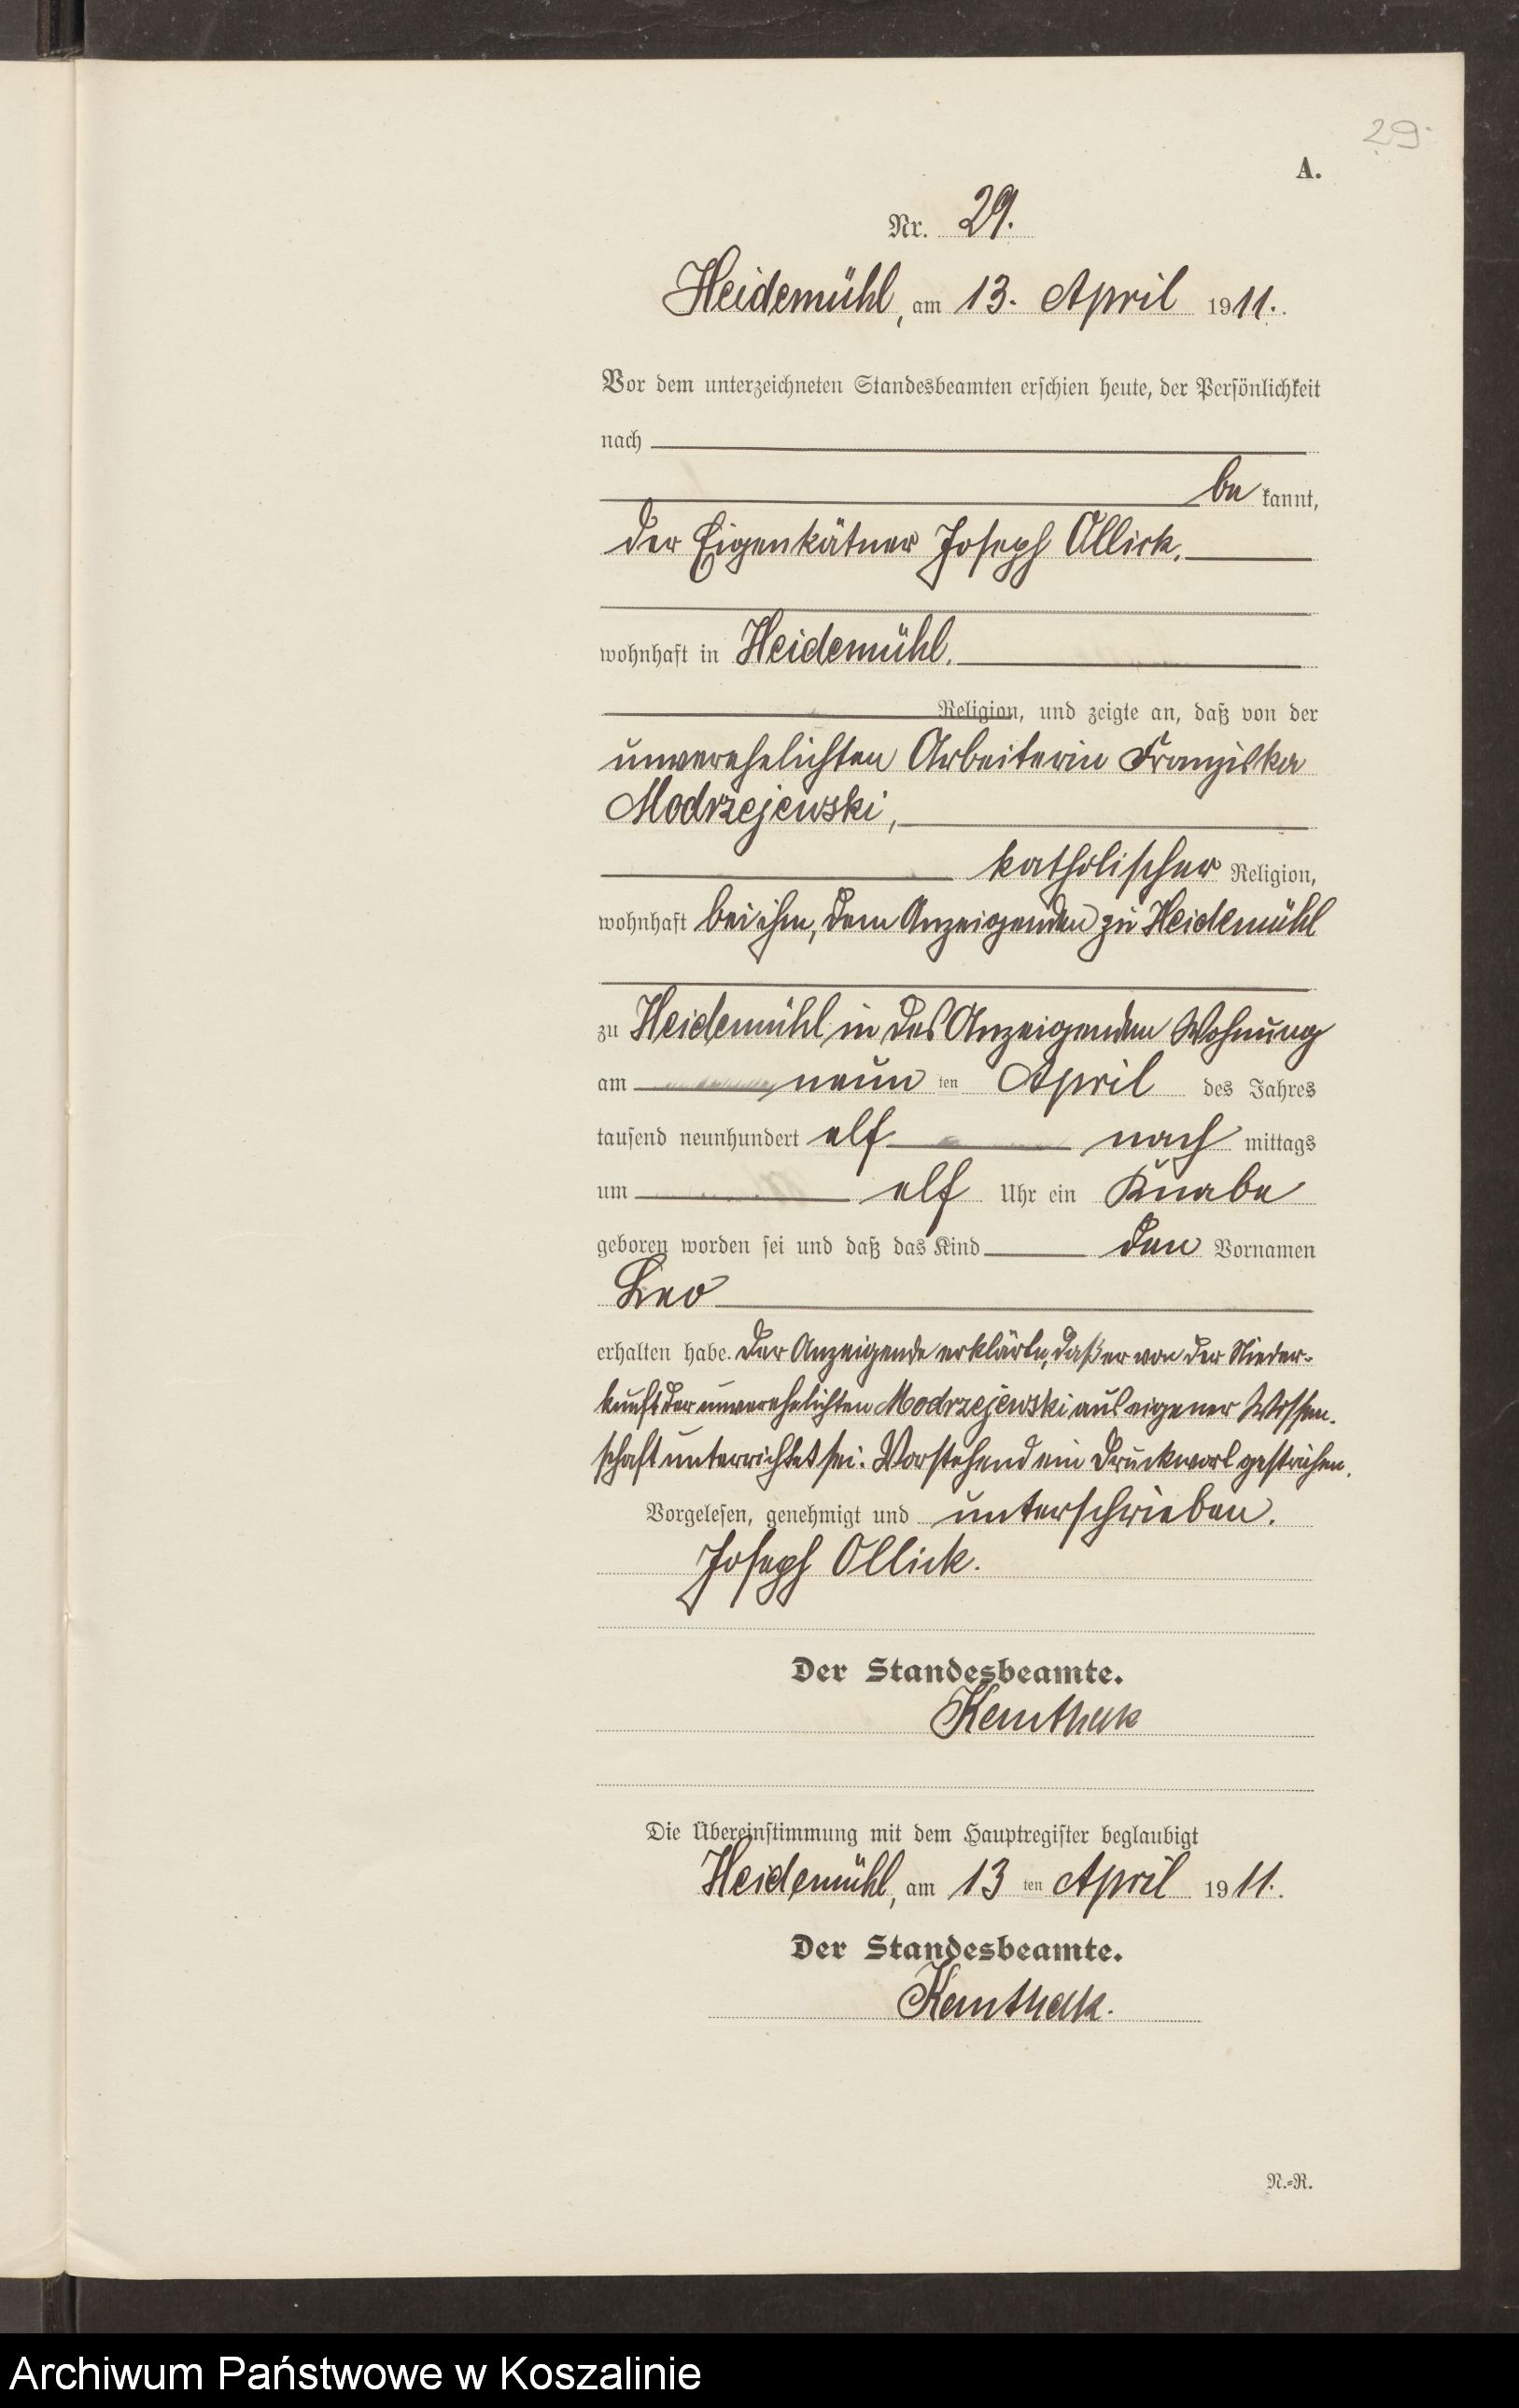 29.
A.
Nr. 29.
Heidemühl, am 13. April 1911.
Vor dem unterzeichneten Standesbeamten erschien heute, der Persönlichkeit
nach
be kannt,
der Eigenkätner Joseph Ollick,
wohnhaft in Heidemühl,
Religion, und zeigte an, daß von der
unverehelichten Arbeiterin Franziska
Modrzejewski,
katholischer Religion,
wohnhaft bei ihm, dem Anzeigenden zu Heidemühl
zu Heidemühl in des Anzeigenden Wohnung
am neun ten April des Jahres
tausend neunhundert elf nach mittags
um elf Uhr ein Knabe
geboren worden sei und daß das Kind den Vornamen
Leo
erhalten habe. Der Anzeigende erklärte, daß er von der Nieder-
kunft der unverehelichten Modrzejewski aus eigener Wissen-
schaft unterrichtet sei. Vorstehend ein Druckwort gestrichen.
Vorgelesen, genehmigt und unterschrieben.
Joseph Ollick.
Der Standesbeamte.
Die Übereinstimmung mit dem Hauptregister beglaubigt
Heidemühl, am 13 ten April 1911.
Der Standesbeamte.
N.-R.
Archiwum Państwowe w Koszalinie